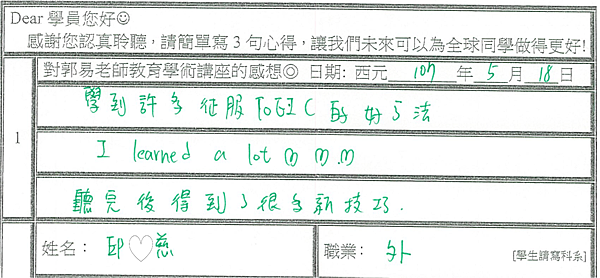 Dear 學員您好☺
感謝您認真聆聽，請簡單寫 3 句心得，讓我們未來可以為全球同學做得更好!
1
對郭易老師教育學術講座的感想◎ 日期: 西元 107 年 5 月 18 日
學到許多征服TOEIC 的好方法
I learned a lot
聽完後得到了很多新技巧.
姓名： 邱♡慈
職業： 外 [學生請寫科系]